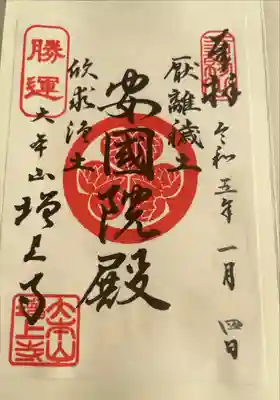 奉拝
令和五年一月四日
厭離穢土
安國院殿
欣求浄土
勝運
大本山増上寺
大本山増上寺